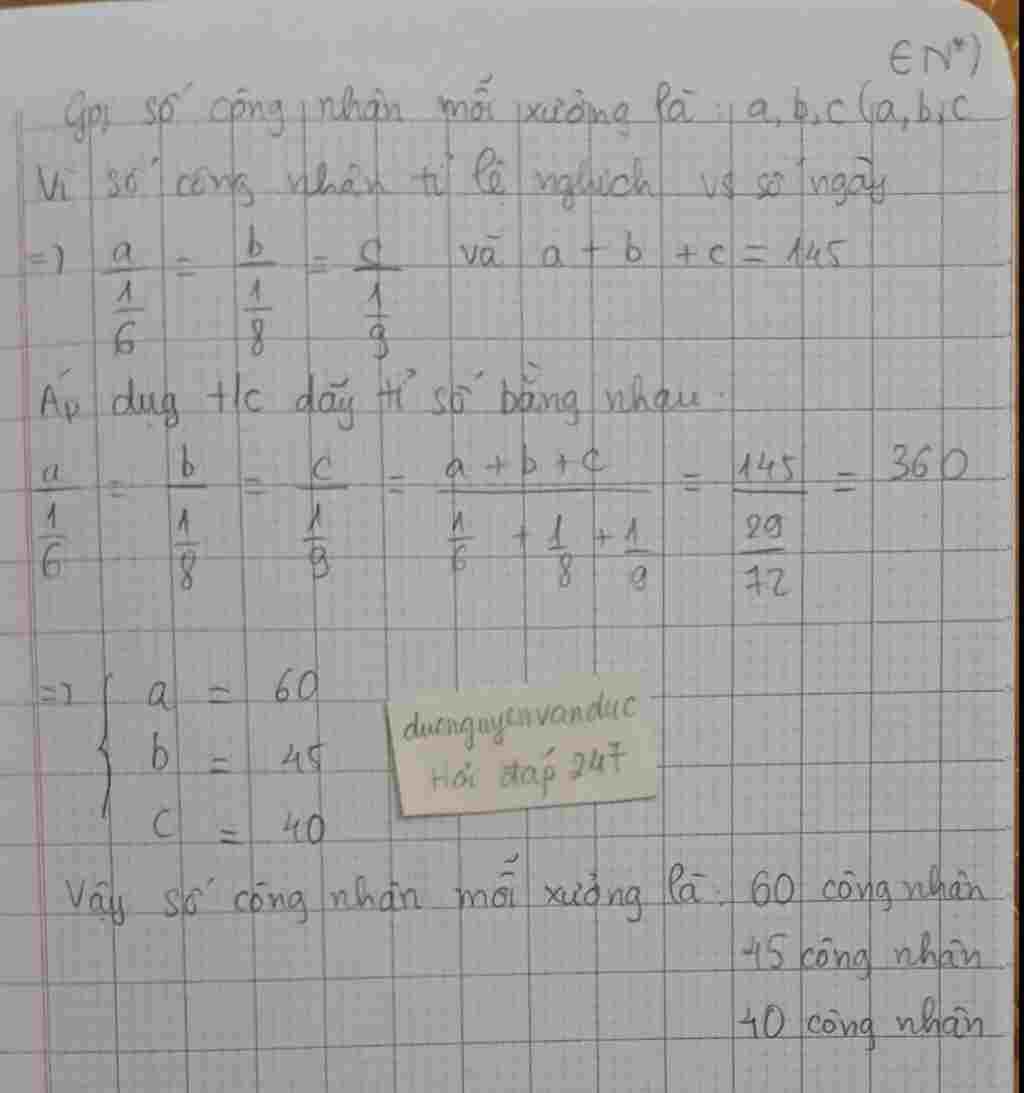 ∈ N*)
Gọi số công nhân mỗi xưởng là: a, b, c (a, b, c
Vì số công nhân tỉ lệ nghịch vs số ngày
=> a / (1/6) = b / (1/8) = c / (1/9) và a + b + c = 145
Áp dụg t/c dãy tỉ số bằng nhau:
a / (1/6) = b / (1/8) = c / (1/9) = (a + b + c) / (1/6 + 1/8 + 1/9) = 145 / (29/72) = 360
=> { a = 60
b = 45
c = 40
ducnguyenvanduc
Hỏi đáp 247
Vậy số công nhân mỗi xưởng là: 60 công nhân
45 công nhân
40 công nhân